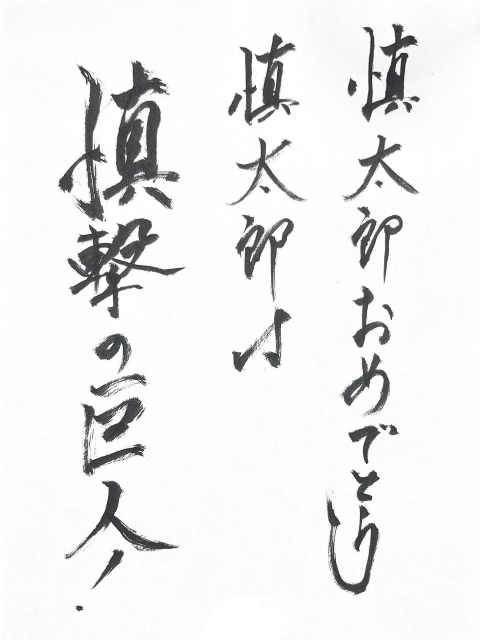 慎太郎おめでとう
慎太郎は
慎撃の巨人!